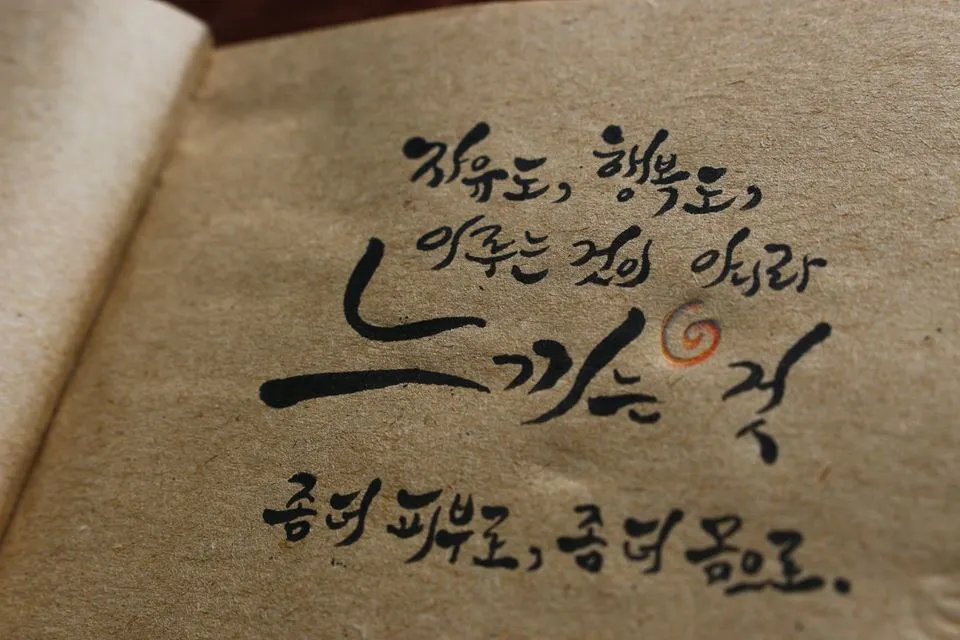 자유도, 행복도,
이루는 것이 아니라
느끼는 것
좀 더 피부로, 좀 더 몸으로.